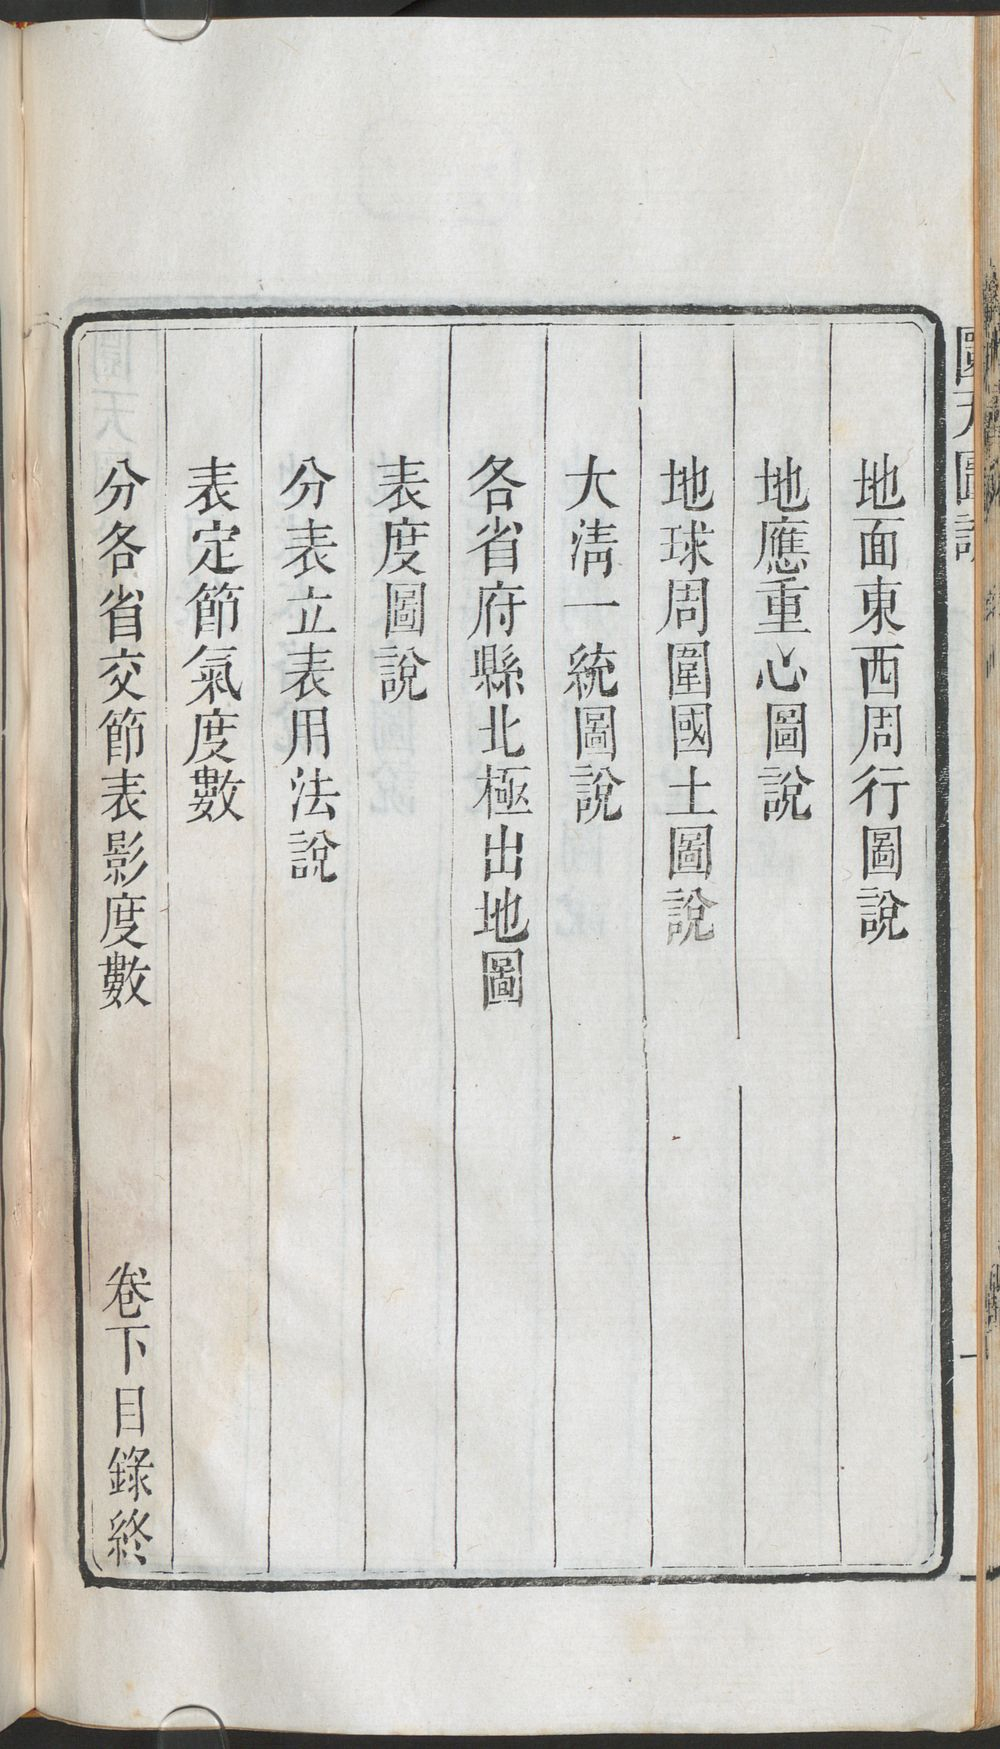 圜天圖說
地面東西周行圖說
地應重心圖說
地球周圍國土圖說
大淸一統圖說
各省府縣北極出地圖
表度圖說
分表立表用法說
表定節氣度數
分各省交節表影度數
卷下目錄終